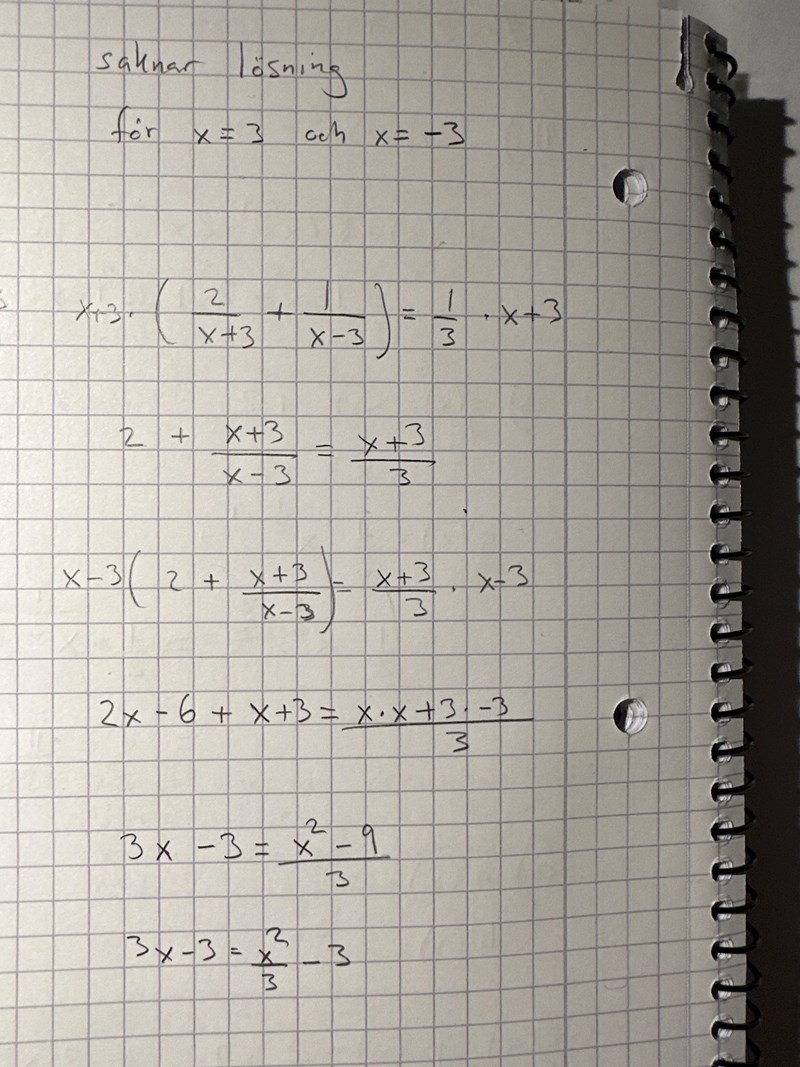 saknar lösning
för x = 3 och x = -3
x+3 · ( 2/(x+3) + 1/(x-3) ) = 1/3 · x+3
2 + (x+3)/(x-3) = (x+3)/3
x-3 ( 2 + (x+3)/(x-3) ) = (x+3)/3 · x-3
2x - 6 + x+3 = (x·x+3·-3)/3
3x - 3 = (x² - 9)/3
3x - 3 = x²/3 - 3